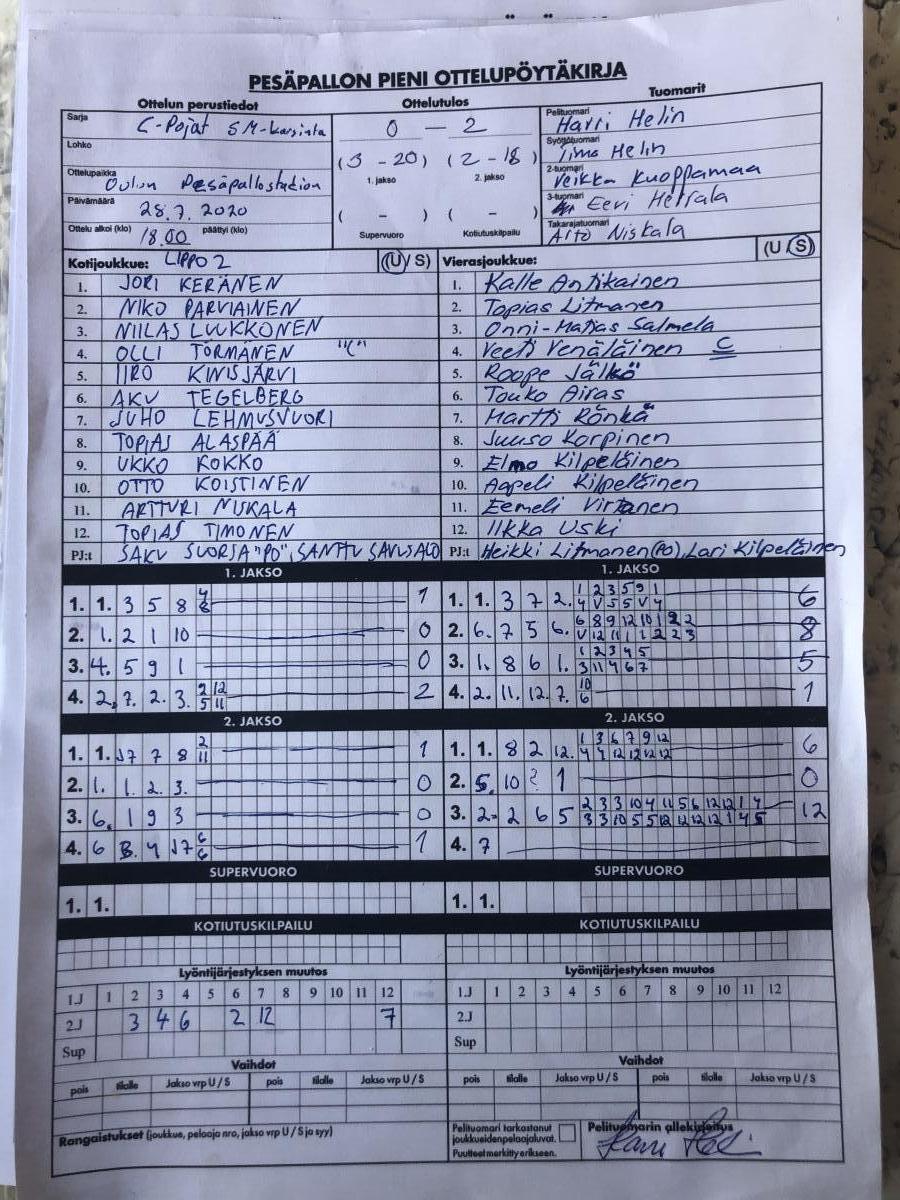 PESÄPALLON PIENI OTTELUPÖYTÄKIRJA
Ottelun perustiedot
Sarja C-Pojat SM-karsinta
Lohko
Ottelupaikka Oulun Pesäpallostadion
Päivämäärä 28.7.2020
Ottelu alkoi (klo) 18.00 päättyi (klo)
Ottelutulos
0 — 2
(3 - 20) (2 - 18)
1. jakso 2. jakso
( - ) ( - )
Supervuoro Kotiutuskilpailu
Tuomarit
Pelituomari Harri Helin
Syöttötuomari Timo Helin
2-tuomari Veikka Kuoppamaa
3-tuomari Eevi Hettala
Takarajatuomari Arto Niskala
Kotijoukkue: LIPPO 2 (U/S)
1. JORI KERÄNEN
2. NIKO PARVIAINEN
3. NIILAS LUUKKONEN
4. OLLI TÖRMÄNEN "C"
5. IIRO KINISJÄRVI
6. AKU TEGELBERG
7. JUHO LEHMUSVUORI
8. TOPIAS ALASPÄÄ
9. UKKO KOKKO
10. OTTO KOISTINEN
11. ARTTURI NISKALA
12. TOPIAS TIMONEN
PJ:t SAKU SUORSA "PO", SANTTU SAVUSALO
Vierasjoukkue: (U/S)
1. Kalle Antikainen
2. Topias Litmanen
3. Onni-Matias Salmela
4. Veeti Venäläinen C
5. Roope Jälkö
6. Touko Airas
7. Martti Rönkä
8. Juuso Korpinen
9. Elmo Kilpeläinen
10. Aapeli Kilpeläinen
11. Eemeli Virtanen
12. Iikka Uski
PJ:t Heikki Litmanen (PO), Lari Kilpeläinen
1. JAKSO
1. 1. 3 5 8 1
2. 1. 2 1 10 0
3. 4. 5 9 1 0
4. 2, 7. 2. 3. 2 12 2
5 11
1. JAKSO
1. 1. 3 7 2. 1 2 3 5 9 1 6
4 V 5 5 V 4
2. 6. 7 5 6. 6 8 9 12 10 1 2 2 8
V 12 11 1 1 2 2 3
3. 1. 8 6 1. 1 2 3 4 5 5
3 11 4 6 7
4. 2. 11. 12. 7. 10 1
6
2. JAKSO
1. 1. J7 7 8 2 1
11
2. 1. 1. 2 3. 0
3. 6. 1 9 3 0
4. 6 8. 4 J7 6 1
6
2. JAKSO
1. 1. 8 2 12. 1 3 6 7 9 12 6
4 4 12 12 12 12
2. 5. 10 ? 1 0
3. 2. 2 6 5 2 3 3 10 4 11 5 6 12 12 1 4 12
3 3 10 5 5 12 12 12 12 1 4 5
4. 7
SUPERVUORO
1. 1.
SUPERVUORO
1. 1.
KOTIUTUSKILPAILU
KOTIUTUSKILPAILU
Lyöntijärjestyksen muutos
1.J 1 2 3 4 5 6 7 8 9 10 11 12
2.J 3 4 6 2 12 7
Sup
Lyöntijärjestyksen muutos
1.J 1 2 3 4 5 6 7 8 9 10 11 12
2.J
Sup
Vaihdot
pois tilalle Jakso vrp U / S pois tilalle Jakso vrp U / S
Vaihdot
pois tilalle Jakso vrp U / S pois tilalle Jakso vrp U / S
Rangaistukset (joukkue, pelaaja nro, jakso vrp U / S ja syy)
Pelituomari tarkastanut
joukkueidenpelaajaluvat.
Puutteet merkitty erikseen.
Pelituomarin allekirjoitus